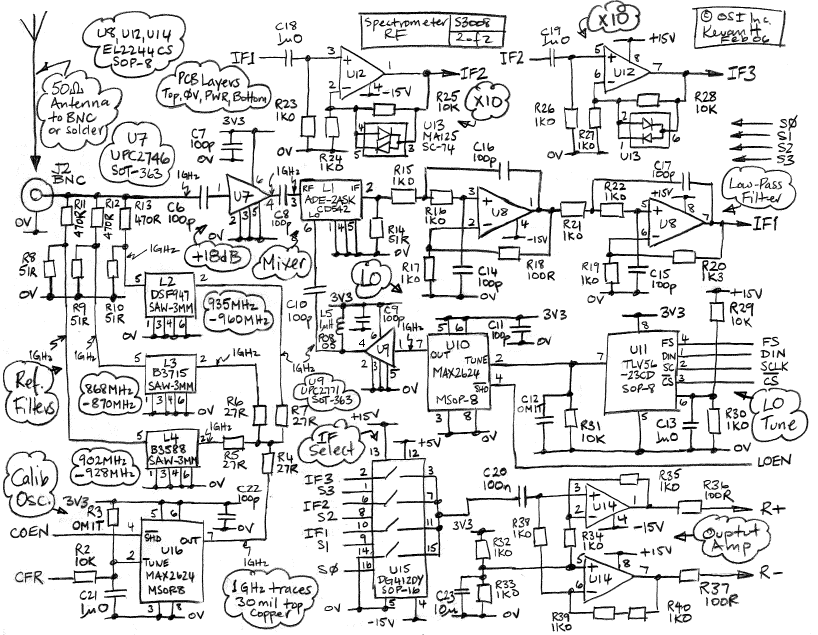 U8, U12, U14
EL2244CS
SOP-8
C18
1u0
IF1
3
2
1
U12
4
-15V
Spectrometer
RF
S3008
2 of 2
IF2
R25
10K
X10
U13
MA125
SC-74
R23
1K0
R24
1K0
0V
C19
1u0
X10
IF2
+15V
8
5
6
7
U12
IF3
R26
1K0
R27
1K0
R28
10K
U13
0V
© OSI Inc.
Kevan H
Feb 06
S0
S1
S2
S3
50Ω
Antenna
to BNC
or solder
PCB Layers
Top, 0V, PWR, Bottom
U7
UPC2746
SOT-363
C7
100p
3V3
0V
J2
BNC
0V
R11
470R
R12
470R
R13
470R
1GHz
C6
100p
U7
1GHz
C8
100p
+18dB
Mixer
RF
L1
IF
ADE-2ASK
CD542
LO
R14
51R
0V
R15
1K0
R16
1K0
C16
100p
U8
-15V
R17
1K0
C14
100p
R18
100R
0V
LO
R21
1K0
R22
1K0
C17
100p
+15V
U8
Low-Pass
Filter
IF1
R19
1K0
C15
100p
R20
1K3
0V
R8
51R
0V
R9
51R
R10
51R
1GHz
L2
DSF947
SAW-3MM
935MHz
-960MHz
L3
B3715
SAW-3MM
868MHz
-870MHz
L4
B3588
SAW-3MM
902MHz
-928MHz
Ref.
Filters
1GHz
R6
27R
R7
27R
R5
27R
R4
27R
C10
100p
1GHz
3V3
L5
1uH
R0805
C9
100p
0V
U9
1GHz
U9
UPC2771
SOT-363
C11
100p
3V3
0V
OUT
U10
TUNE
MAX2624
SHD
MSOP-8
0V
C12
OMIT
R31
10K
3V3
U11
TLV56
-23CD
SOP-8
FS
DIN
SC
CS
0V
+15V
R29
10K
FS
DIN
SCLK
CS
C13
1u0
R30
1K0
0V
LO
Tune
LOEN
Calib
Osc.
3V3
R3
OMIT
COEN
R2
10K
CFR
C21
1u0
SHD
OUT
U16
TUNE
MAX2624
MSOP8
0V
C22
100p
0V
1GHz
1GHz traces
30 mil top
copper
IF
Select
+15V
+5V
13
12
IF3
S3
IF2
S2
IF1
S1
S0
U15
DG412DY
SOP-16
0V
-15V
C20
100n
3V3
R32
1K0
R33
1K0
C23
10u
0V
R38
1K0
R34
1K0
R35
1K0
U14
-15V
R36
100R
R+
Ouptut
Amp
+15V
U14
R37
100R
R-
R39
1K0
R40
1K0